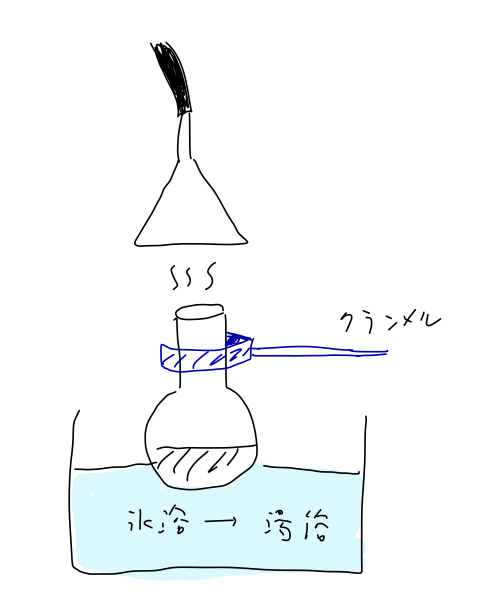 クランメル
氷浴 → 湯浴